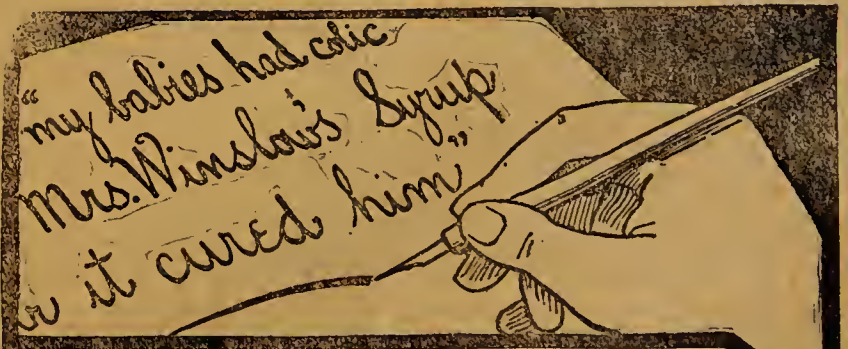 "my babies had colic
Mrs. Winslow's Syrup
it cured him"